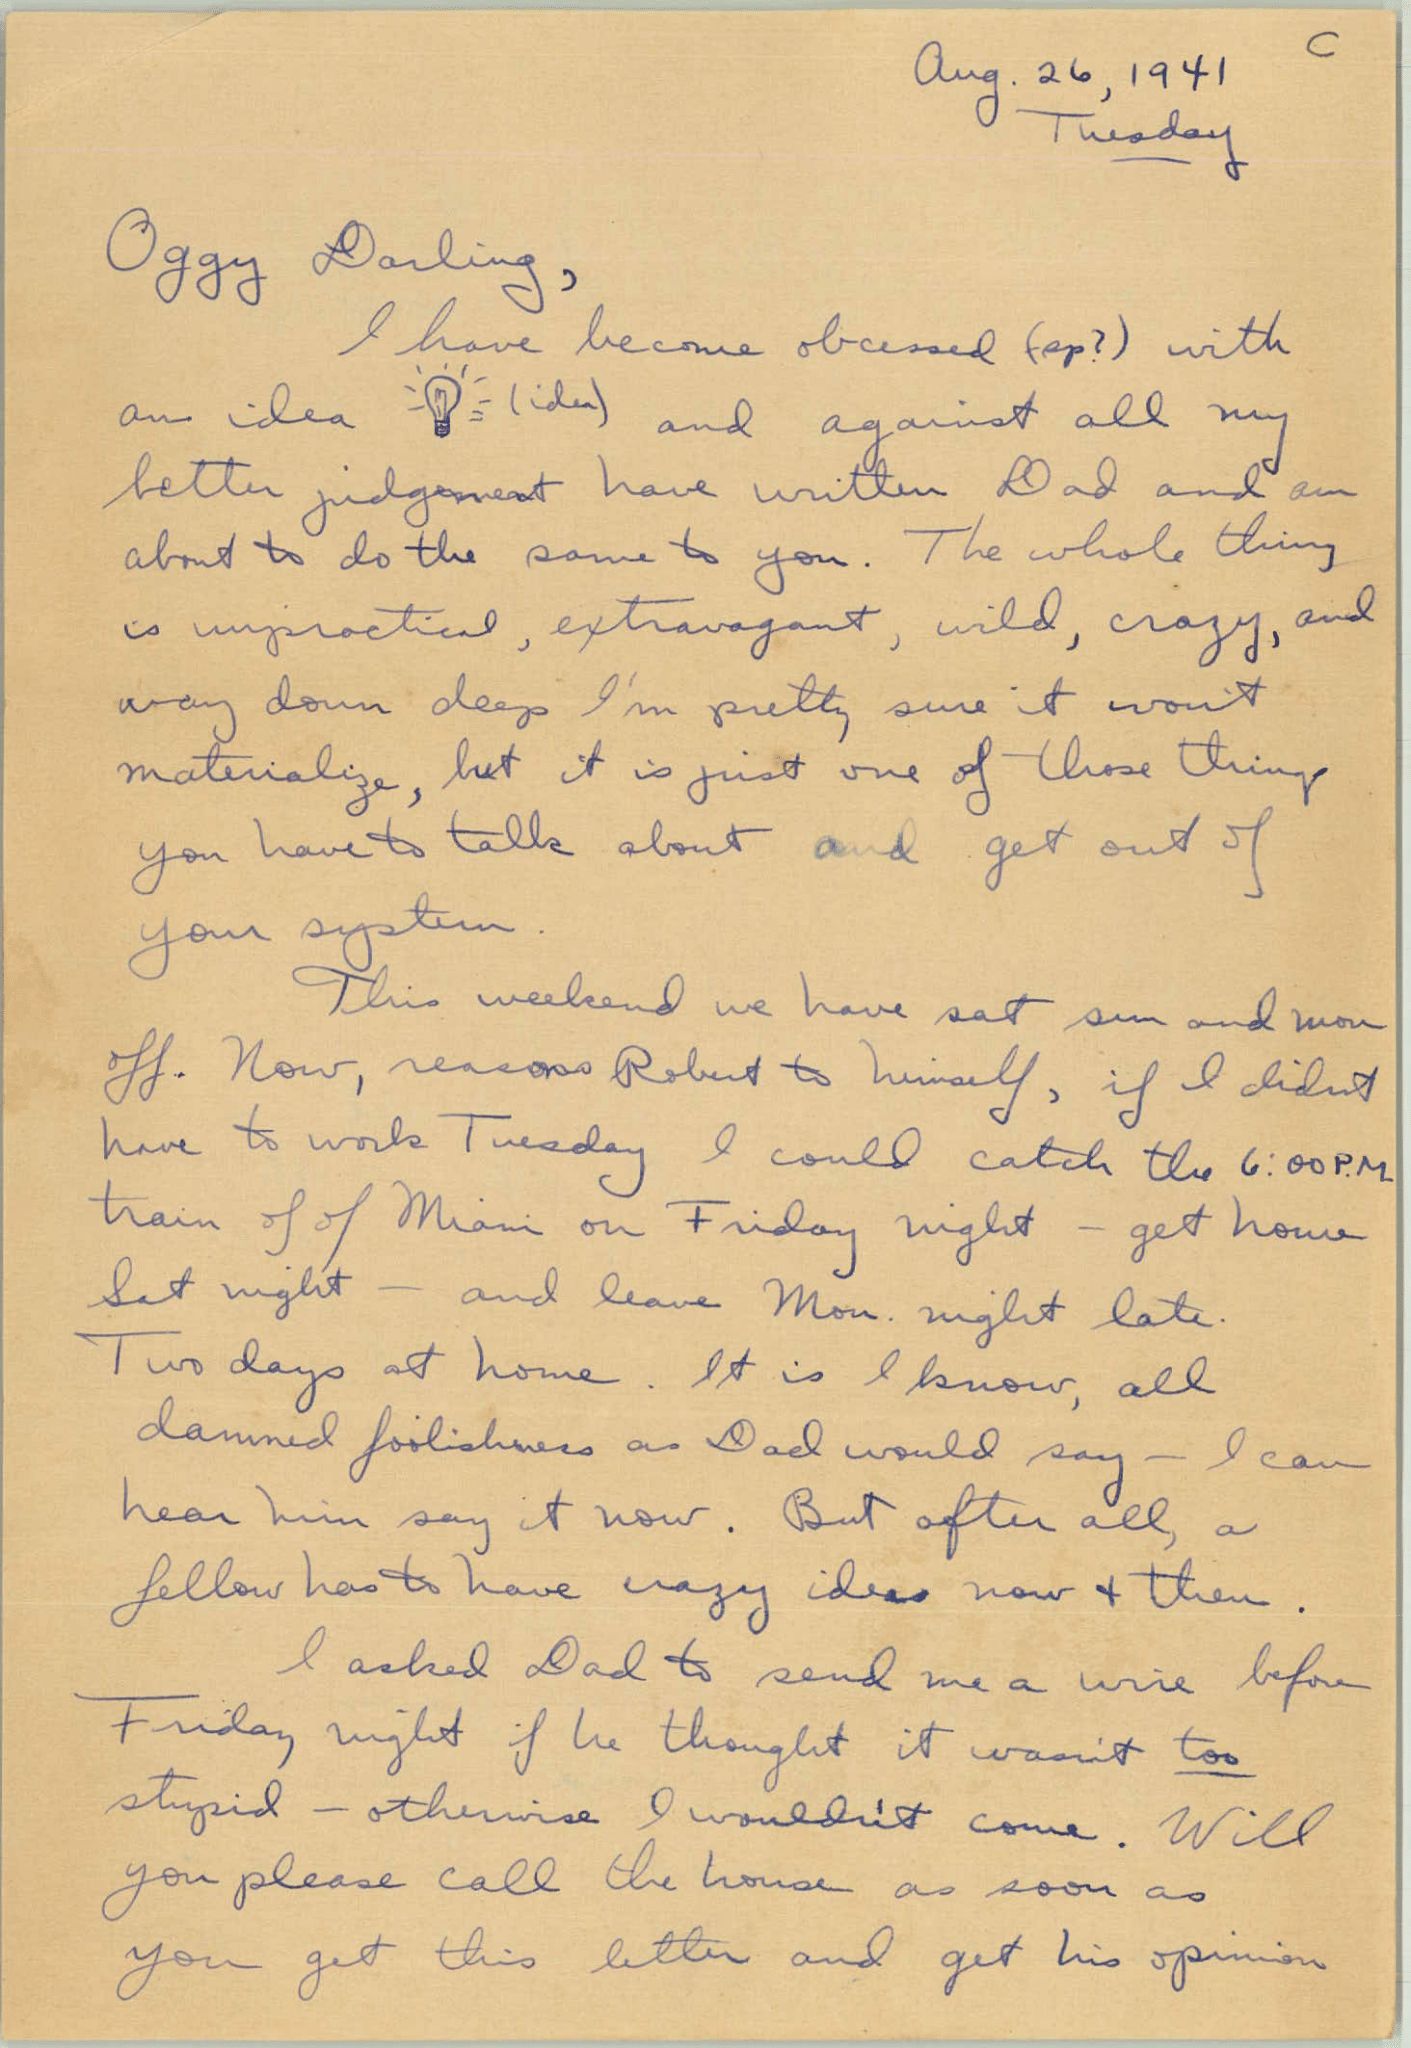 C
Aug. 26, 1941
Tuesday
Oggy Darling,
I have become obcessed (sp?) with
an idea (idea) and against all my
better judgement have written Dad and am
about to do the same to you. The whole thing
is unpractical, extravagant, wild, crazy, and
way down deep I'm pretty sure it won't
materialize, but it is just one of those things
you have to talk about and get out of
your system.
This weekend we have sat sun and mon
off. Now, reasons Robert to himself, if I didn't
have to work Tuesday I could catch the 6:00 P.M
train of of Miami on Friday night – get home
Sat night – and leave Mon. night late.
Two days at home. It is I know, all
damned foolishness as Dad would say – I can
hear him say it now. But after all, a
fellow has to have crazy ideas now + then.
I asked Dad to send me a wire before
Friday night if he thought it wasn't too
stupid – otherwise I wouldn't come. Will
you please call the house as soon as
you get this letter and get his opinion